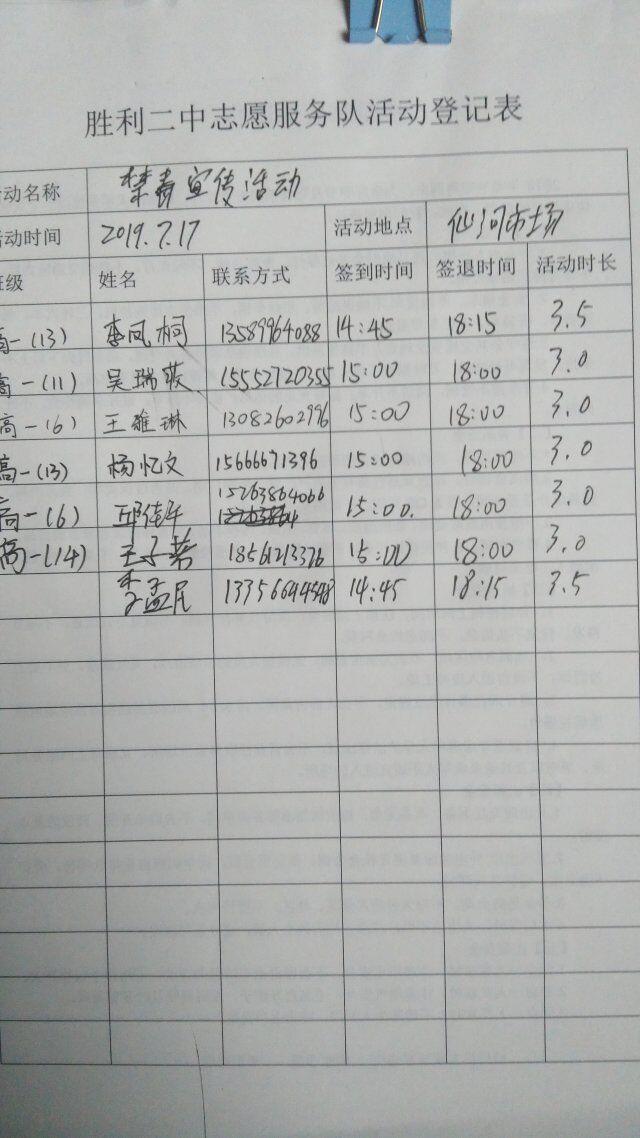 胜利二中志愿服务队活动登记表
活动名称 禁毒宣传活动
活动时间 2019.7.17 活动地点 仙河市场
班级 姓名 联系方式 签到时间 签退时间 活动时长
高一(13) 李凤桐 13589964088 14:45 18:15 3.5
高一(11) 吴瑞璇 15552720355 15:00 18:00 3.0
高一(6) 王雅琳 13082602996 15:00 18:00 3.0
高一(13) 杨忆文 15666671396 15:00 18:00 3.0
高一(6) 邱佳午 15263864066 15:00. 18:00 3.0
高一(14) 王子若 18561213376 15:00 18:00 3.0
李孟民 13356694548 14:45 18:15 3.5